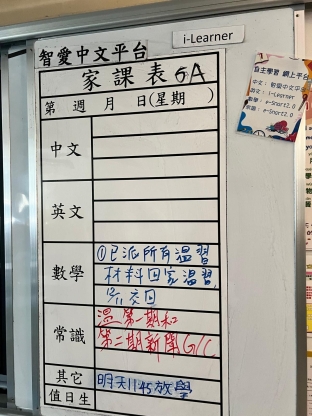 i-Learner
智愛中文平台
家課表 6A
第 週 月 日(星期 )
中文
英文
數學
①已派所有溫習
材料回家溫習,
常識
溫第一期和
第二期新聞G/C
其它
明天11:45放學
值日生
自主學習 網上平台
中文: 智愛中文平台
英文: i-Learner
數學: e-Smart2.0
常識: e-Smart2.0